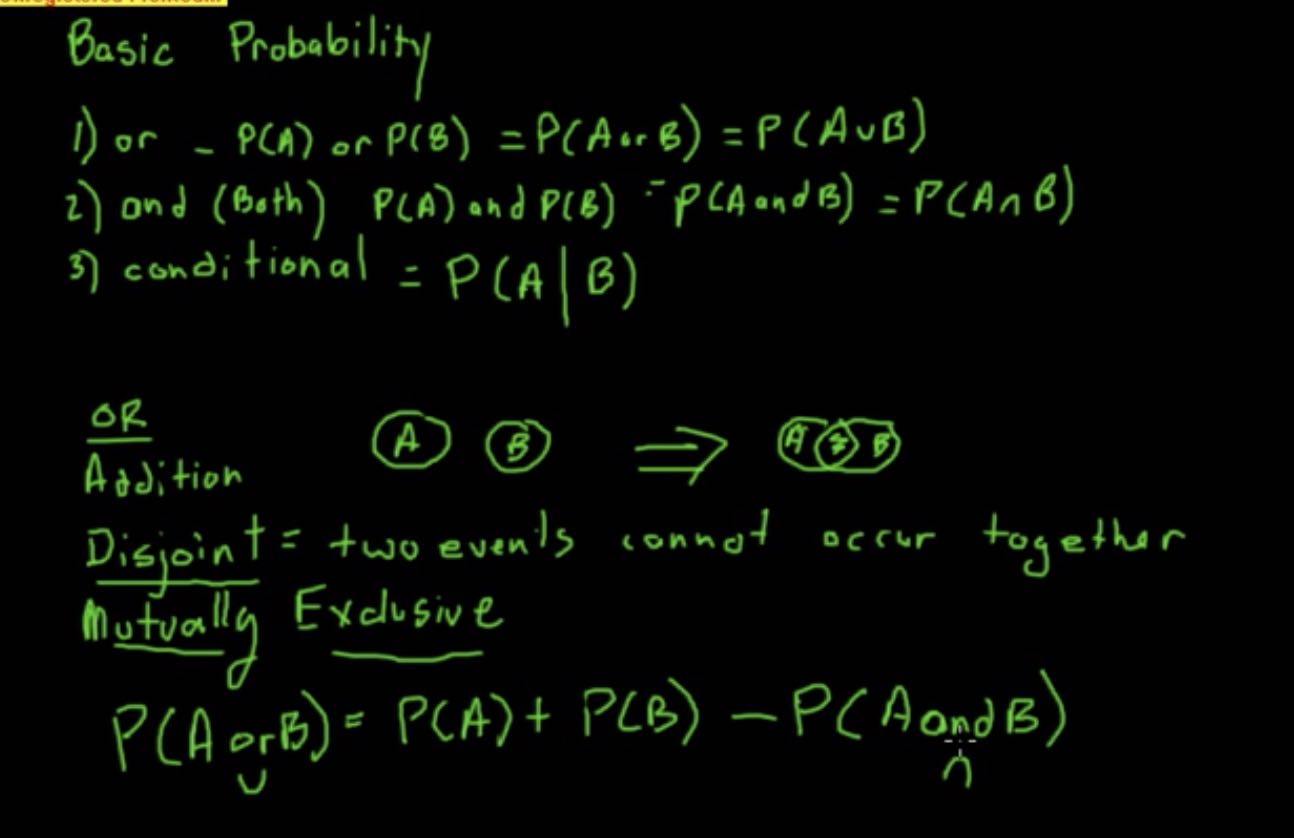 Basic Probability
1) or - P(A) or P(B) = P(A or B) = P(A∪B)
2) and (Both) P(A) and P(B) = P(A and B) = P(A∩B)
3) conditional = P(A|B)
OR
Addition
A B ⇒ A B
Disjoint = two events cannot occur together
Mutually Exclusive
P(A or B) = P(A) + P(B) - P(A and B)
∪ ∩